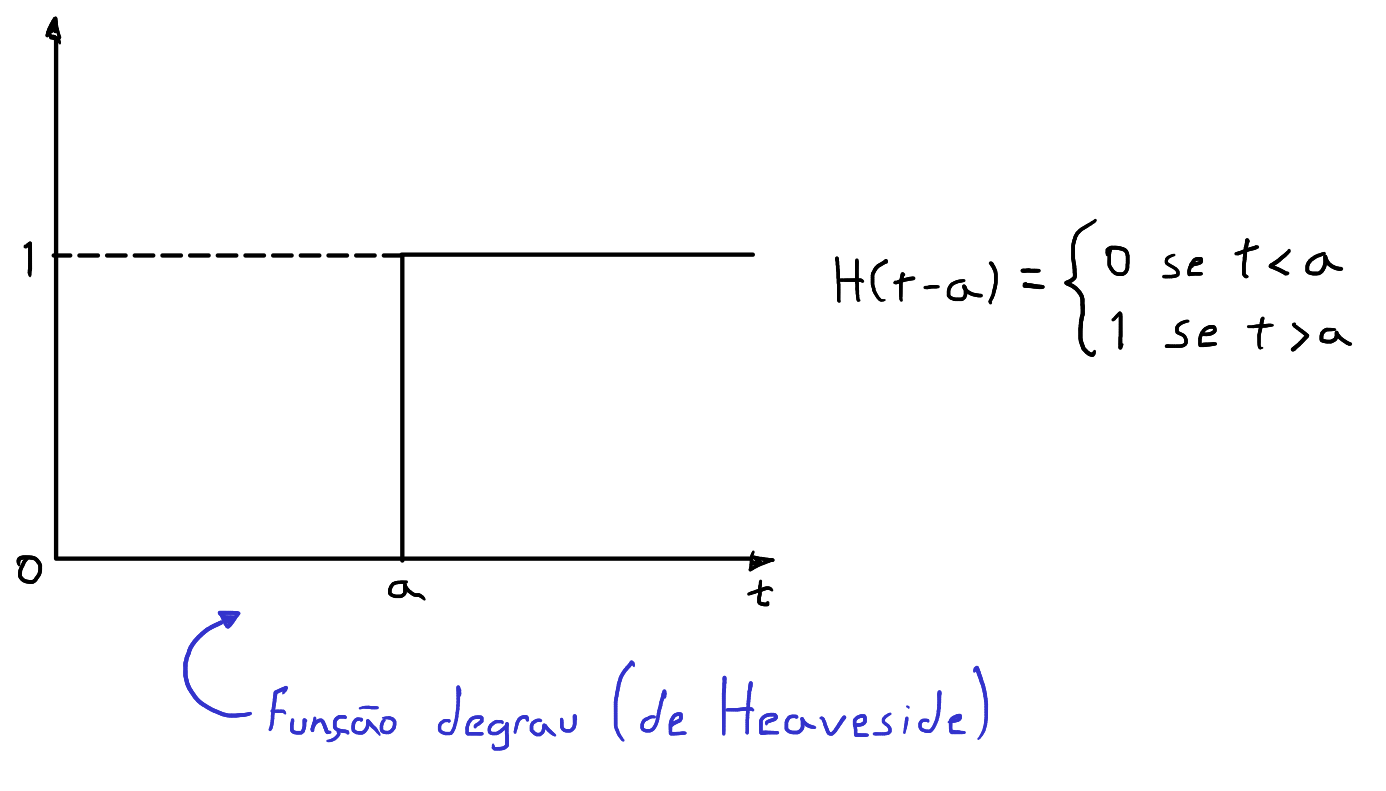 1
H(t-a) = { 0 se t < a
1 se t > a
0
a
t
Função degrau (de Heaveside)